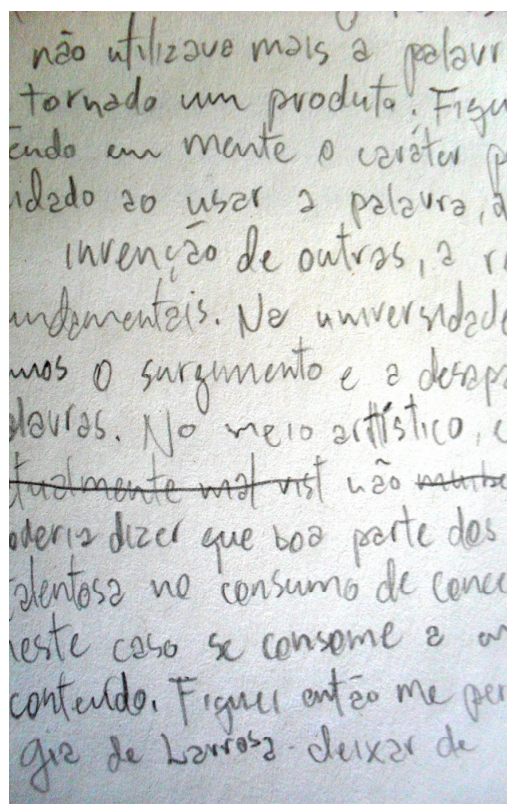 não utilizava mais a palavr
tornado um produto. Fiqu
endo em mente o caráter p
idado ao usar a palavra, a
invenção de outras, a r
undamentais. Na universidade
mos o surgimento e a desapa
lavras. No meio artístico, e
tualmente mal vist não muito
oderia dizer que boa parte dos
alentosa no consumo de conce
este caso se consome a
conteúdo. Fiquei então me per
gia de Larrosa deixar de